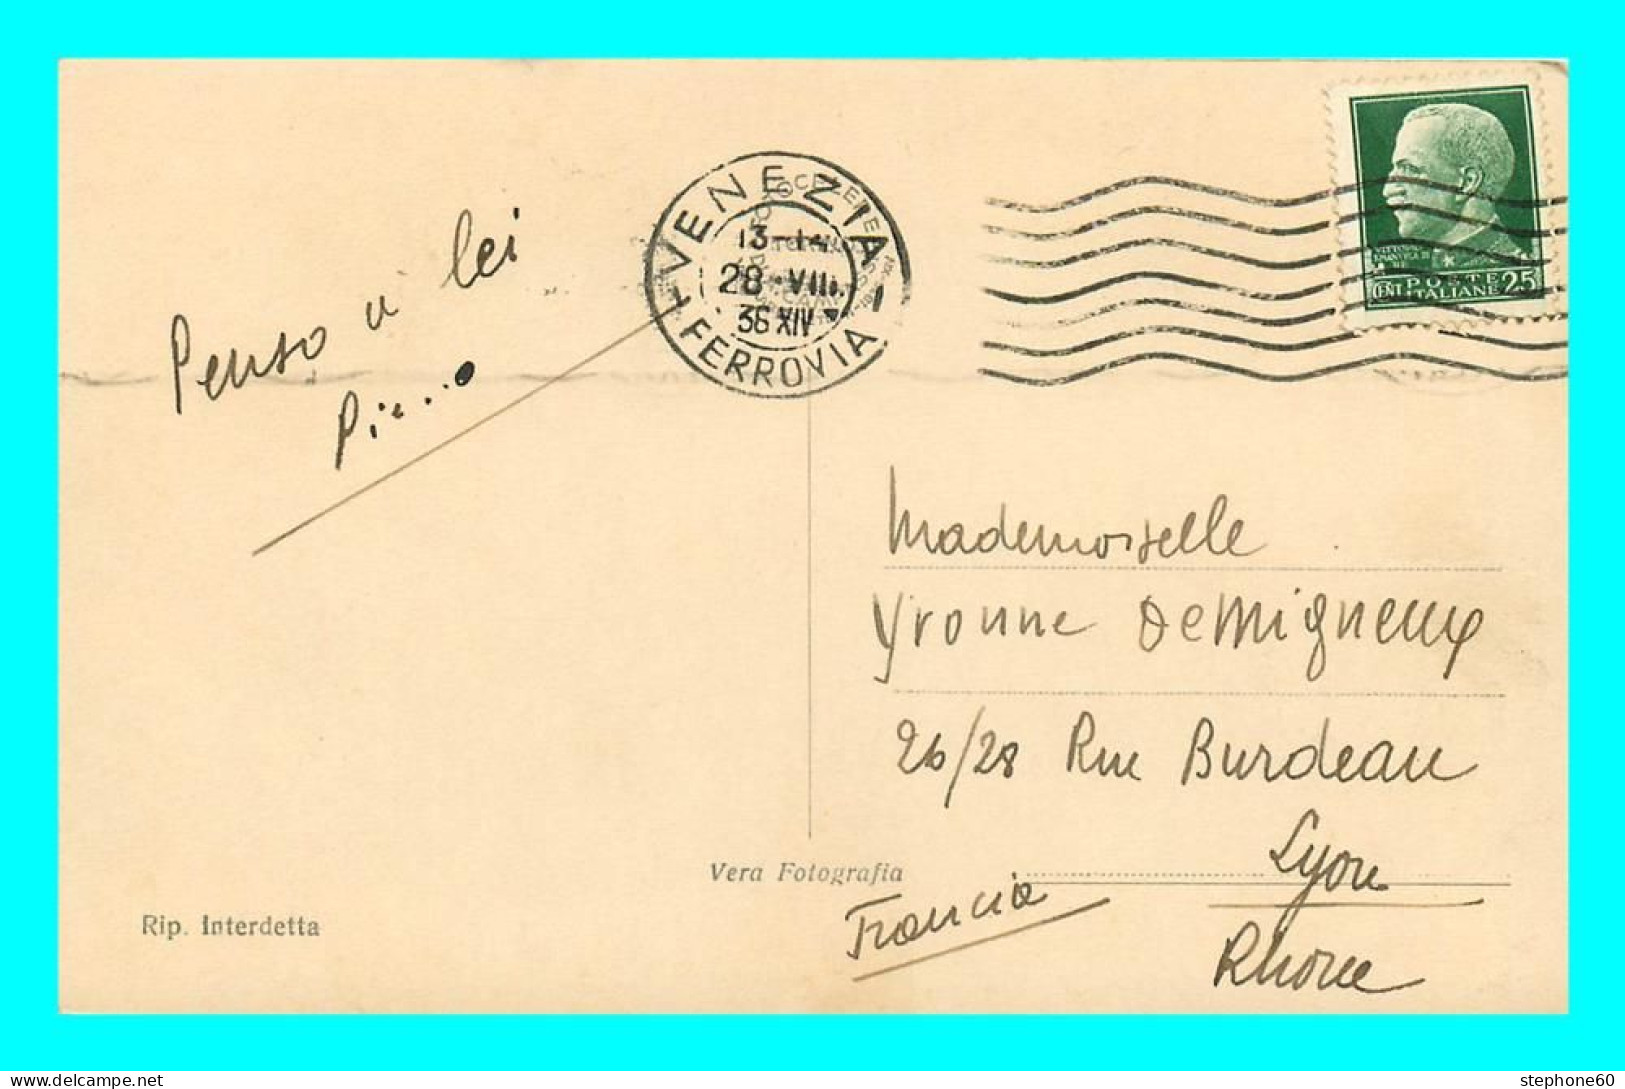 VENEZIA
13-14
28·VIII.
36 XIV
FERROVIA
POSTE
ITALIANE
CENT 25
Penso a lei
Mademoiselle
Yvonne Demigneux
26/28 Rue Burdeau
Lyon
Rhone
Francia
Vera Fotografia
Rip. Interdetta
stephone60